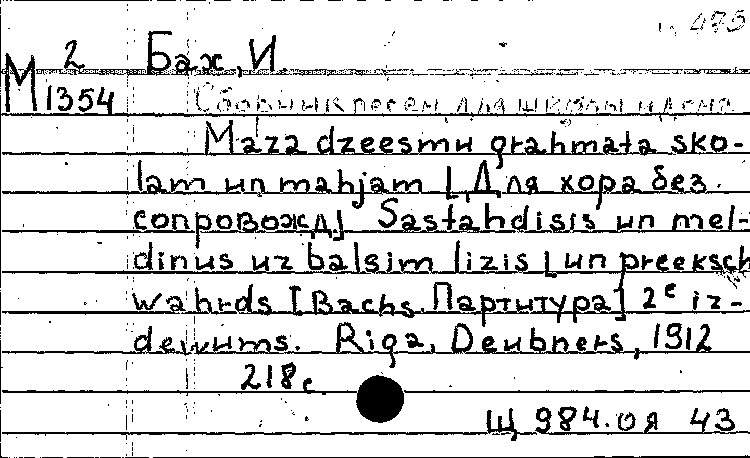 475
М 2 Бах, И.
1354 Сборник песен для школы и дома
Maza dzeesmu grahmata sko-
lam un mahjam [Для хора без
сопровожд] Sastahdisis un mel-
dinus uz balsim lizis [un preeksch
wahrds [Bachs. Партитура] 2e iz-
dewums. Riga, Deubners, 1912
218 с.
Щ 984.оя 43